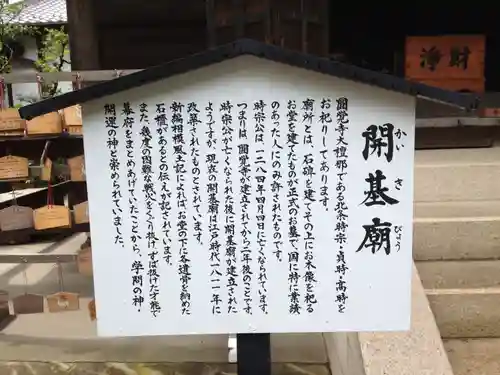 開基廟
かい
き
びょう
圓覚寺大檀那である北条時宗・貞時・高時を
お祀りしてあります。
廟所とは、石碑を建てその上にお木像を祀る
お堂を建てたものが正式のお墓で、国に特に業績
のあった人にのみ許されたものです。
時宗公は、一二八四年四月四日に亡くなられています。
つまりは、西暦一二八二年円覚寺を建立されてから二年後の
時宗公が亡くなられた後に開基廟が建立された
ようですが、現在の開基廟は江戸時代一八一一年に
改築されたものとされています。
新編相模風土記によれば、お堂の下に各遺骨を納めた
石櫃があるとの伝えが記されています。
また、幾度の困難な戦火をくぐり抜け、ずば抜けた才能で
幕府をまとめあげてきたことから、学問の神・
開運の神と崇められていました。
浄財